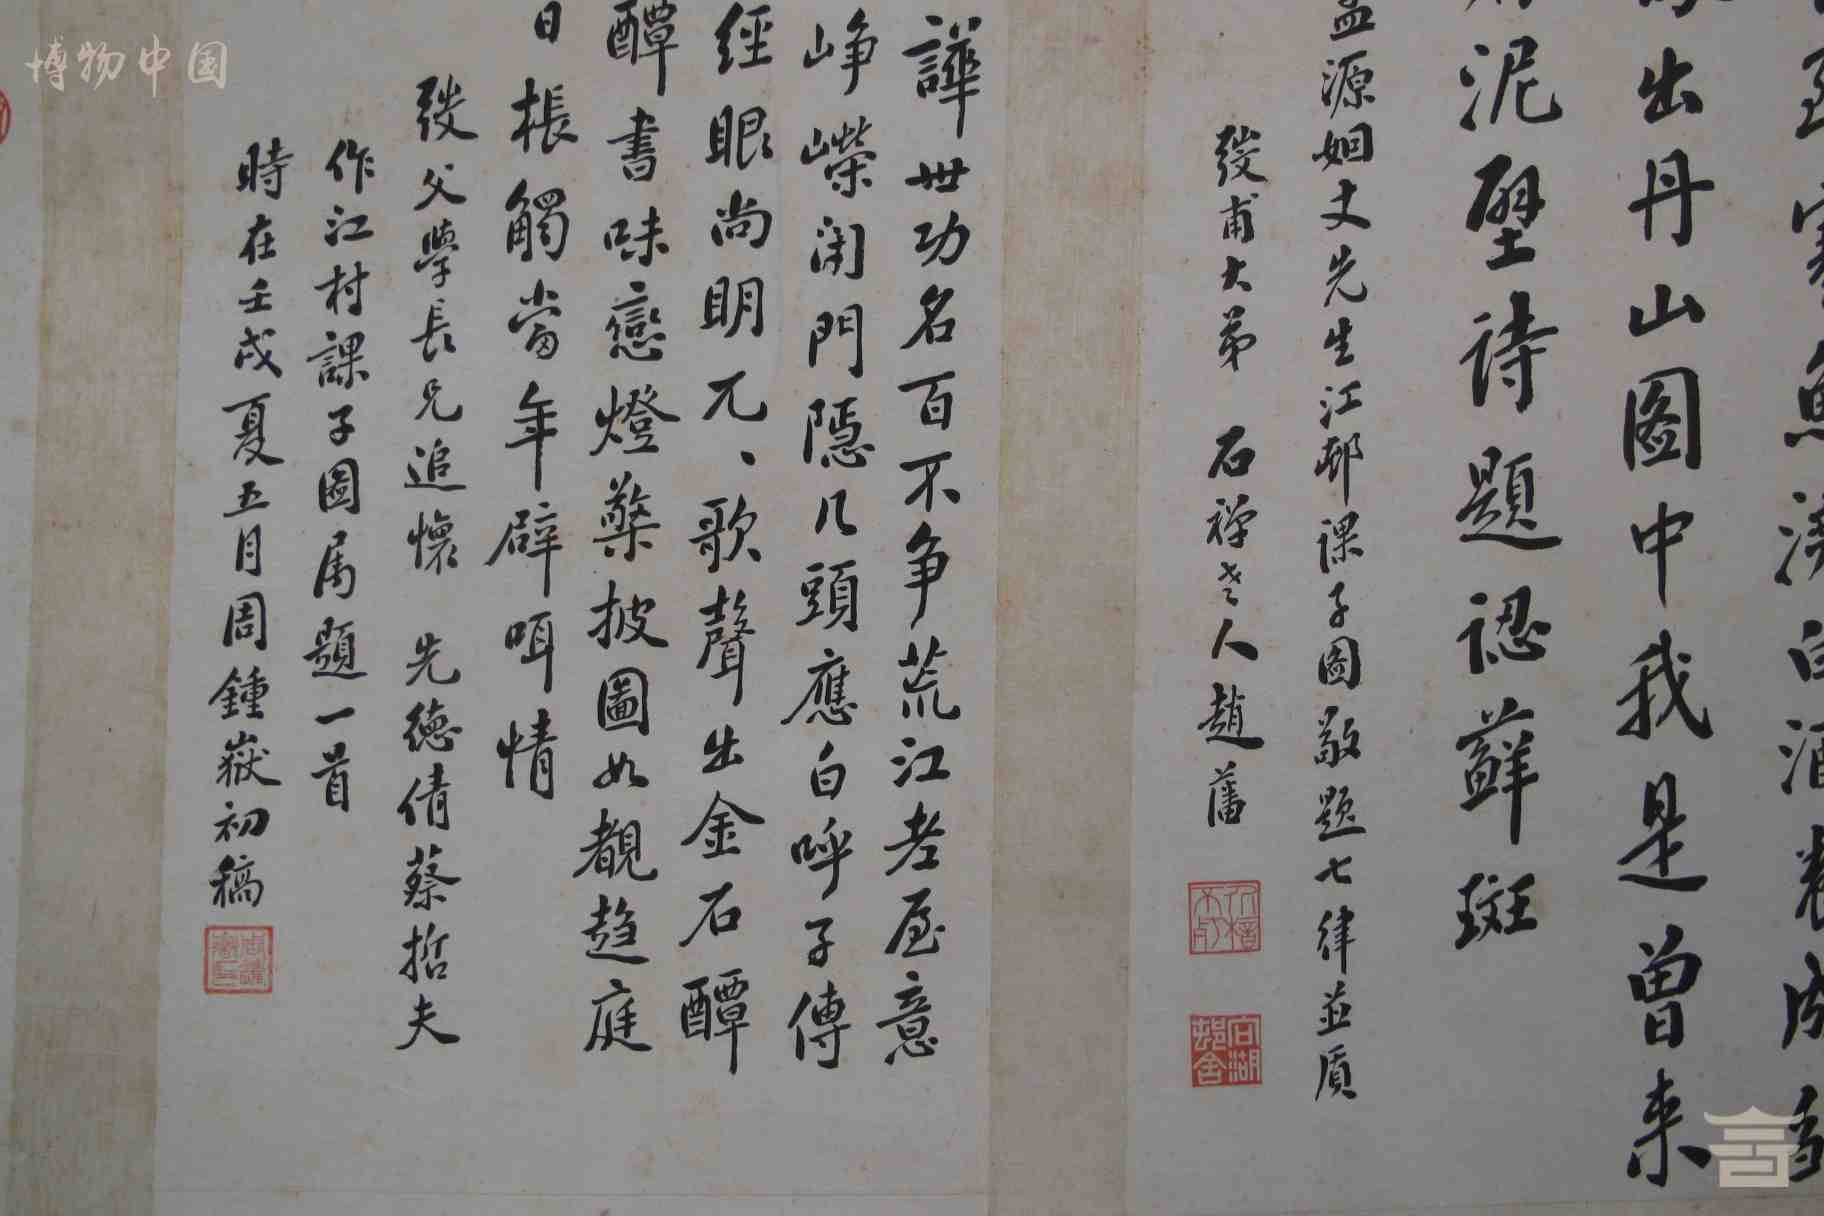 寒魚
出丹山圖中我是曾来
泥壁詩題認蘚斑
孟源姻丈先生江邨課子圖敬題七律並質
發甫大弟 石禪老人趙藩
譁世功名百不争荒江老屋意
崢嶸閉門隱几頭應白呼子傳
經眼尚明兀、歌聲出金石醰
醰書味戀燈檠披圖如覩趋庭
日棖觸當年辟咡情
發父學長兄追懷 先德倩蔡哲夫
作江村課子圖属題一首
時在壬戌夏五月周鍾嶽初稿
官湖邨舍
博物中国